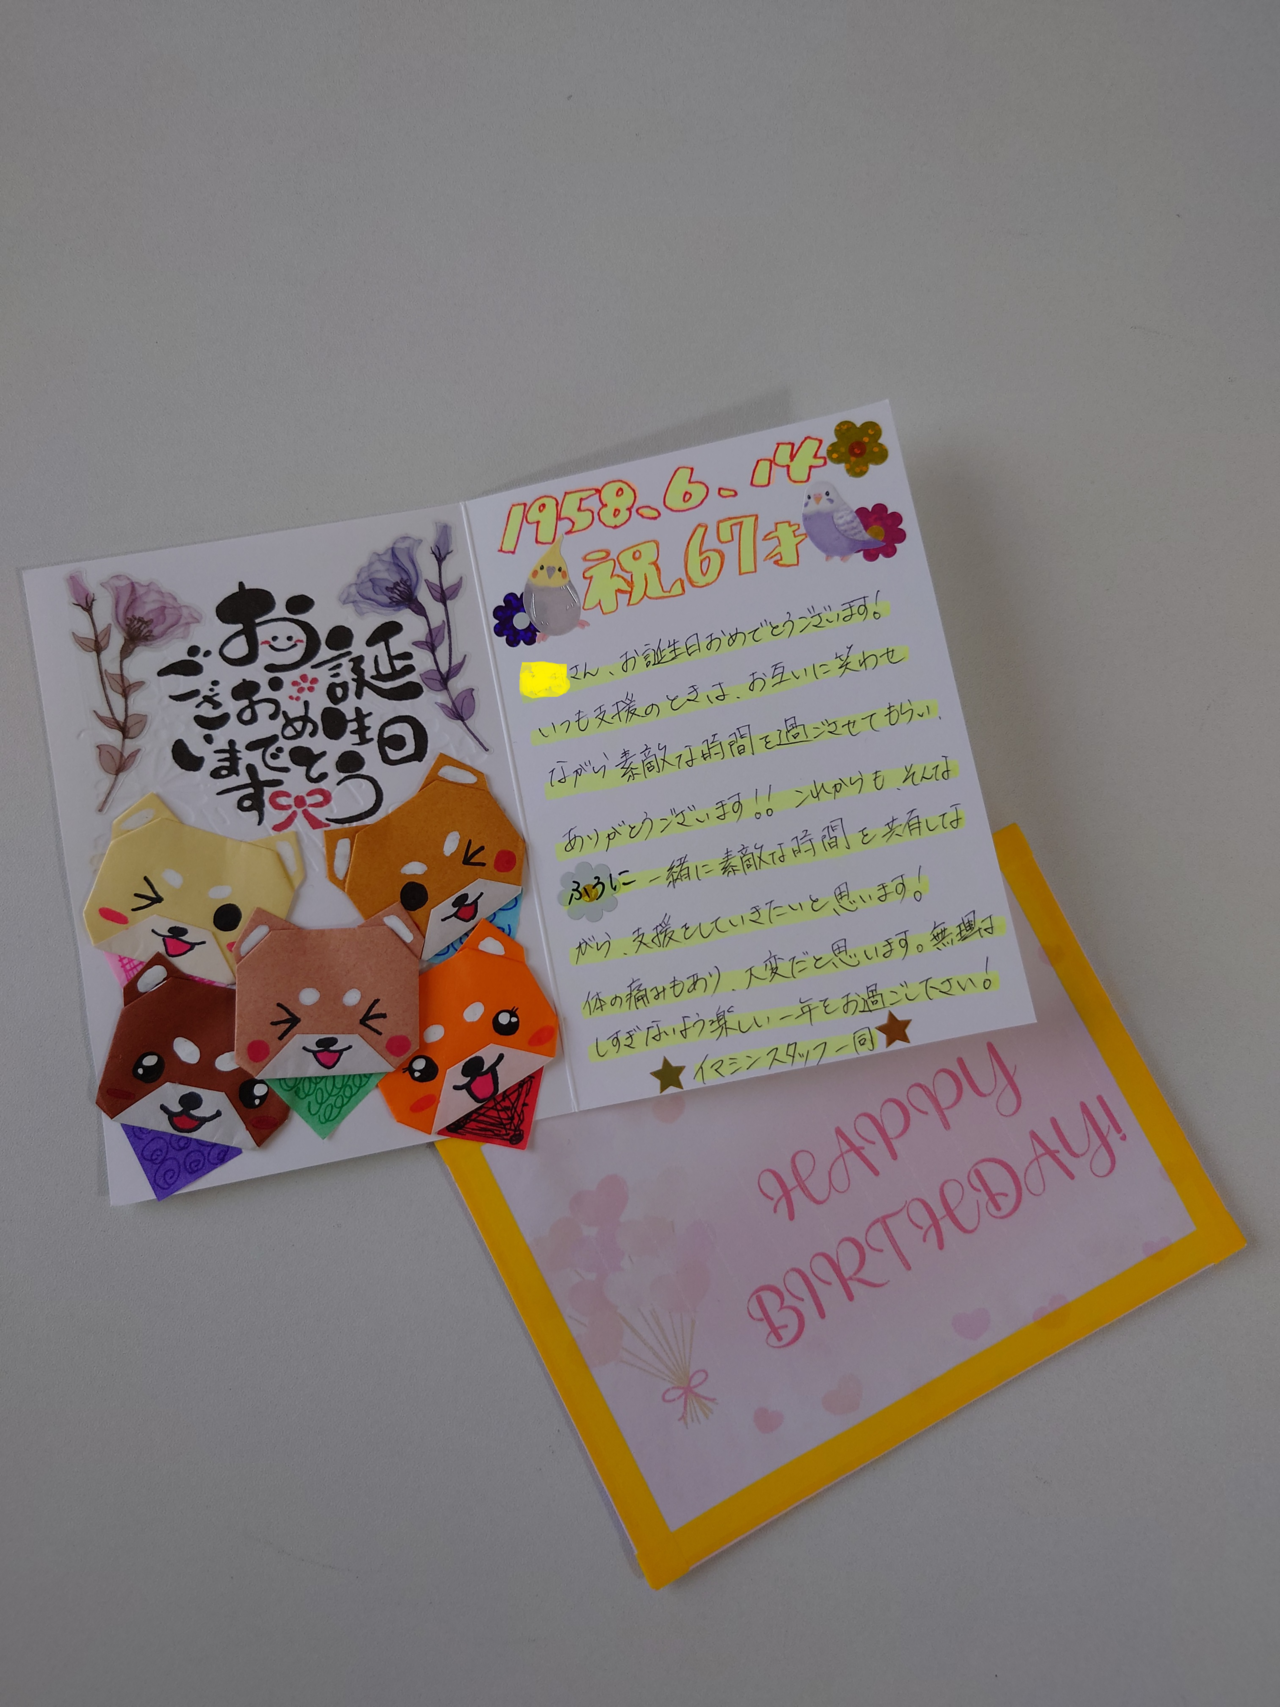 お誕生日
おめでとう
ございます
1958.6.14
祝67才
さん、お誕生日おめでとうございます!
いつも支援のときは、お互いに笑わせ
ながら素敵な時間を過ごさせてもらい、
ありがとうございます!! これからも、そんな
ふうに一緒に素敵な時間を共有しな
がら、支援をしていきたいと思います!
体の痛みもあり、大変だと思います。無理は
しすぎないよう楽しい一年をお過ごし下さい!
イマジンスタッフ一同
HAPPY
BIRTHDAY!